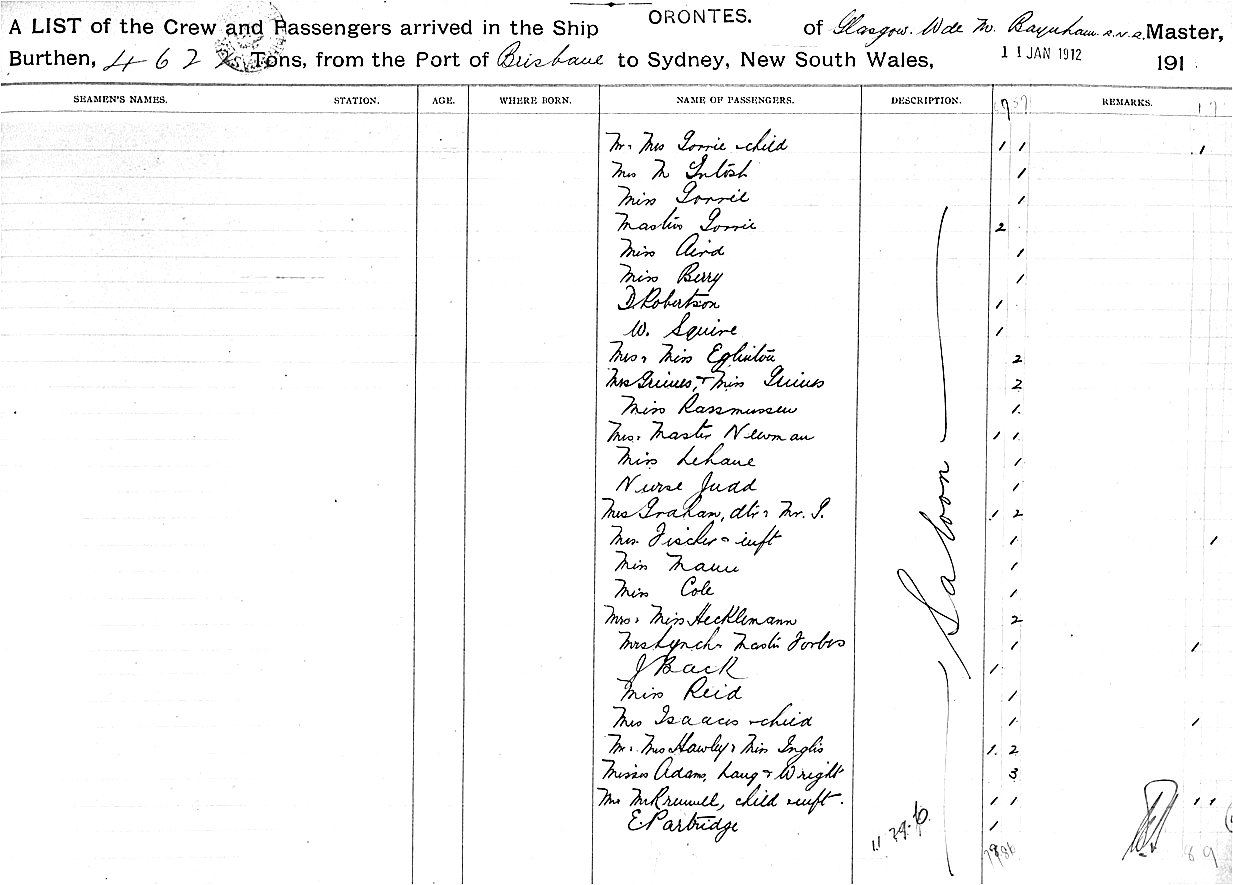 A LIST of the Crew and Passengers arrived in the Ship ORONTES. of Glasgow. W de M. Baynham R.N.R. Master,
Burthen, 4622 Tons, from the Port of Brisbane to Sydney, New South Wales, 11 JAN 1912 191
SEAMEN'S NAMES. STATION. AGE. WHERE BORN. NAME OF PASSENGERS. DESCRIPTION. REMARKS. 17
Mr. Mrs Gorrie child 1 1 1
Mrs M Intosh 1
Miss Gorrie 1
Masters Gorrie 2
Miss Aird 1
Miss Berry 1
D. Robertson 1
W. Squire 1
Mrs. Miss Eglinton 2
Mrs Grimes, + Miss Grimes 2
Miss Rassmussen 1
Mrs. Master Newman 1 1
Miss Lehane 1
Nurse Judd 1
Mrs Graham, dtr. Mr. I. 1 2
Mrs. Fischer inft 1 1
Miss Mann 1
Miss Cole 1
Mrs. Miss Hecklemann 2
Mrs Lynch. Master Forbes 1 1
J Back 1
Miss Reid 1
Mrs Isaacs child 1 1
Mr. Mrs Hawley. Miss Inglis 1. 2
Misses Adams, Laug + Wright 3
Mrs child inft. 1 1 1 1
E. Partridge 1
Saloon
89